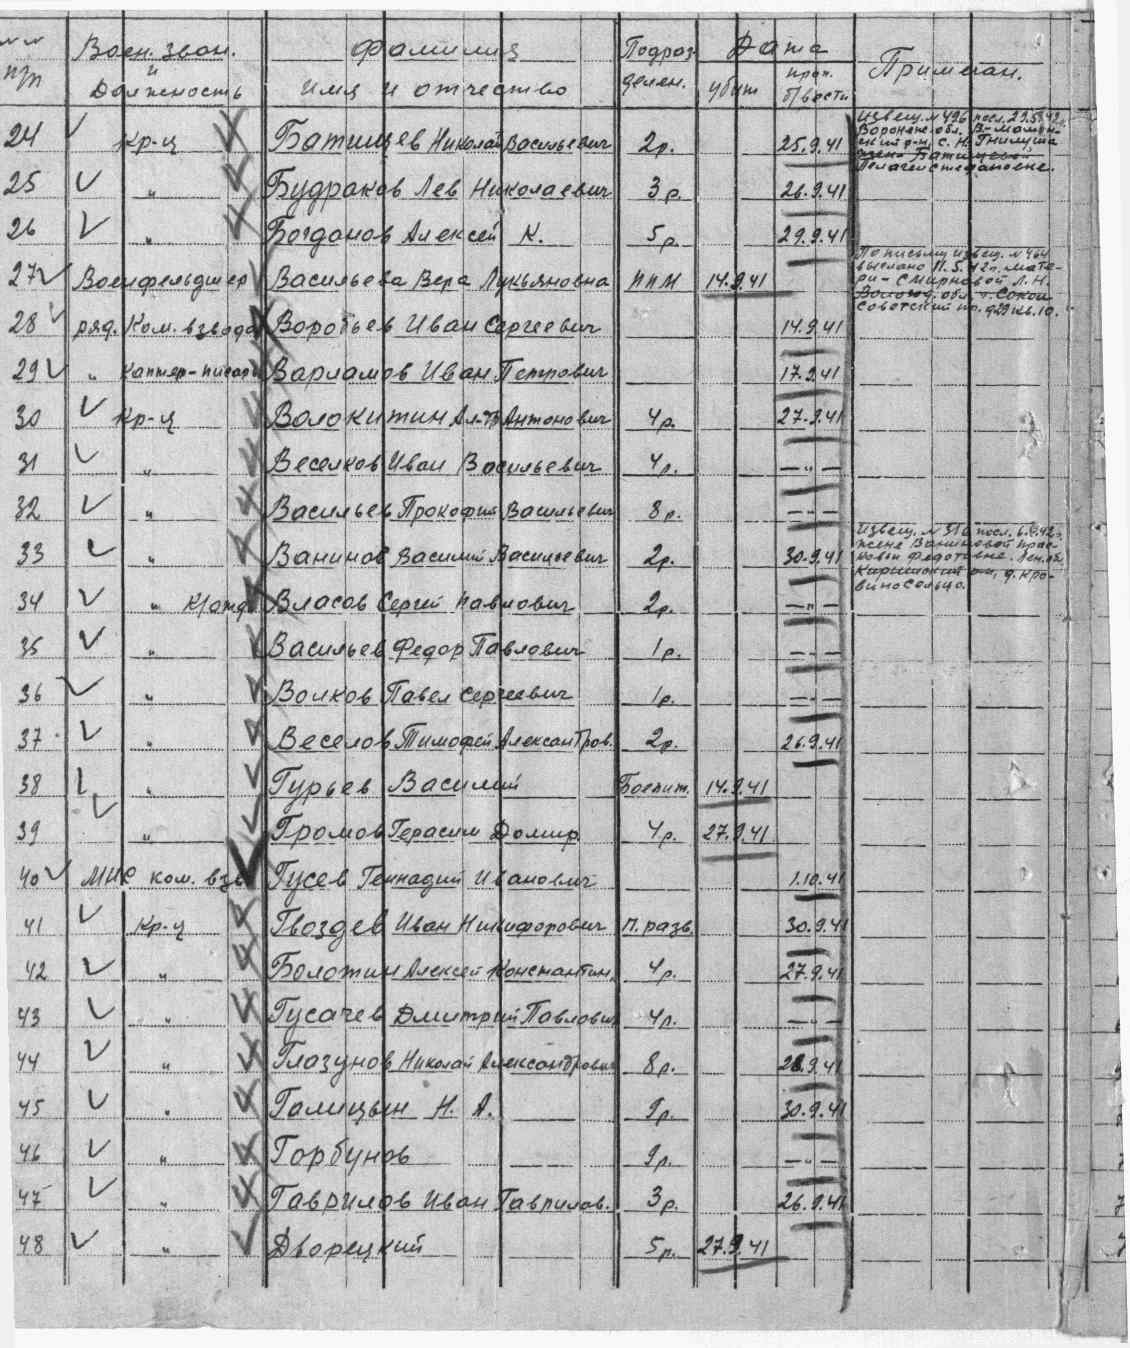 №№ п/п Воен. зван. и Должность Фамилия Имя и отчество Подраз делен. Дата убит проп. б/вести Примечан.
24 Кр-ц Батищев Николай Васильевич 2р. 25.9.41 Извещ. № 496 посл. 29.5.42г.
Воронеж. обл. В-Мамон-
ский р-н, с. Н. Гнилуша
жена Батищевой
Пелагеи Стефановне.
25 " Будраков Лев Николаевич 3р. 26.9.41
26 " Богданов Алексей К. 5р. 29.9.41
27 Военфельдшер Васильева Вера Лукьяновна ППМ 14.9.41 По письму извещ. № 464
выслано 11.5.42г. мате-
ри - Смирновой Л.Н.
Вологод. обл. г. Сокол
Советский пр. д. 29 кв. 10.
28 ряд. Ком. взвода Воробьев Иван Сергеевич 14.9.41
29 " Каптер-писарь Варламов Иван Петрович 17.9.41
30 Кр-ц Волокитин Ал-др Антонович 4р. 27.9.41
31 " Веселков Иван Васильевич 4р. — " —
32 " Васильев Прокофий Васильевич 8р. — " —
33 " Ванинов Василий Васильевич 2р. 30.9.41 Извещ. № 316 посл. 6.4.42г.
жене Ваниновой Прас-
ковьи Федотовне. Лен. обл.
Киришский р-н, д. Кро-
вино Сельцо.
34 " К/отд Власов Сергей Павлович 2р. — " —
35 " Васильев Федор Павлович 1р. — " —
36 " Волков Павел Сергеевич 1р. — " —
37 " Веселов Тимофей Александров. 2р. 26.9.41
38 " Гурьев Василий Боепит. 14.9.41
39 " Громов Герасим Домир. 4р. 27.9.41
40 МНС ком. взв Гусев Геннадий Иванович 1.10.41
41 Кр-ц Гвоздев Иван Никифорович п. разв. 30.9.41
42 " Болотин Алексей Константин. 4р. 27.9.41
43 " Гусачев Дмитрий Павлович 4р. — " —
44 " Глазунов Николай Александрович 8р. 28.9.41
45 " Галицын Н. А. 9р. 30.9.41
46 " Горбунов 9р. — " —
47 " Гаврилов Иван Гаврилов. 3р. 26.9.41
48 " Дворецкий 5р. 27.9.41